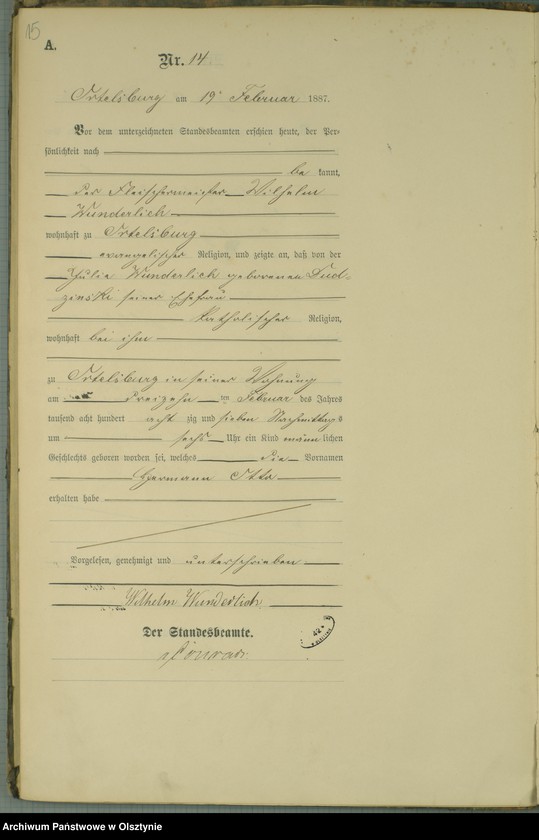 15
A.
Nr. 14
Ortelsburg am 19. Februar 1887.
Vor dem unterzeichneten Standesbeamten erschien heute, der Per-
sönlichkeit nach
be kannt,
der Fleischermeister Wilhelm
Wunderlich
wohnhaft zu Ortelsburg
evangelischer Religion, und zeigte an, daß von der
Julie Wunderlich geborenen Dud-
zinski seiner Ehefrau
katholischer Religion,
wohnhaft bei ihm
zu Ortelsburg in seiner Wohnung
am dreizehn ten Februar des Jahres
tausend acht hundert acht zig und sieben Nachmittags
um sechs Uhr ein Kind männlichen
Geschlechts geboren worden sei, welches die Vornamen
Hermann Otto
erhalten habe
Vorgelesen, genehmigt und unterschrieben
Wilhelm Wunderlich
Der Standesbeamte.
Archiwum Państwowe w Olsztynie